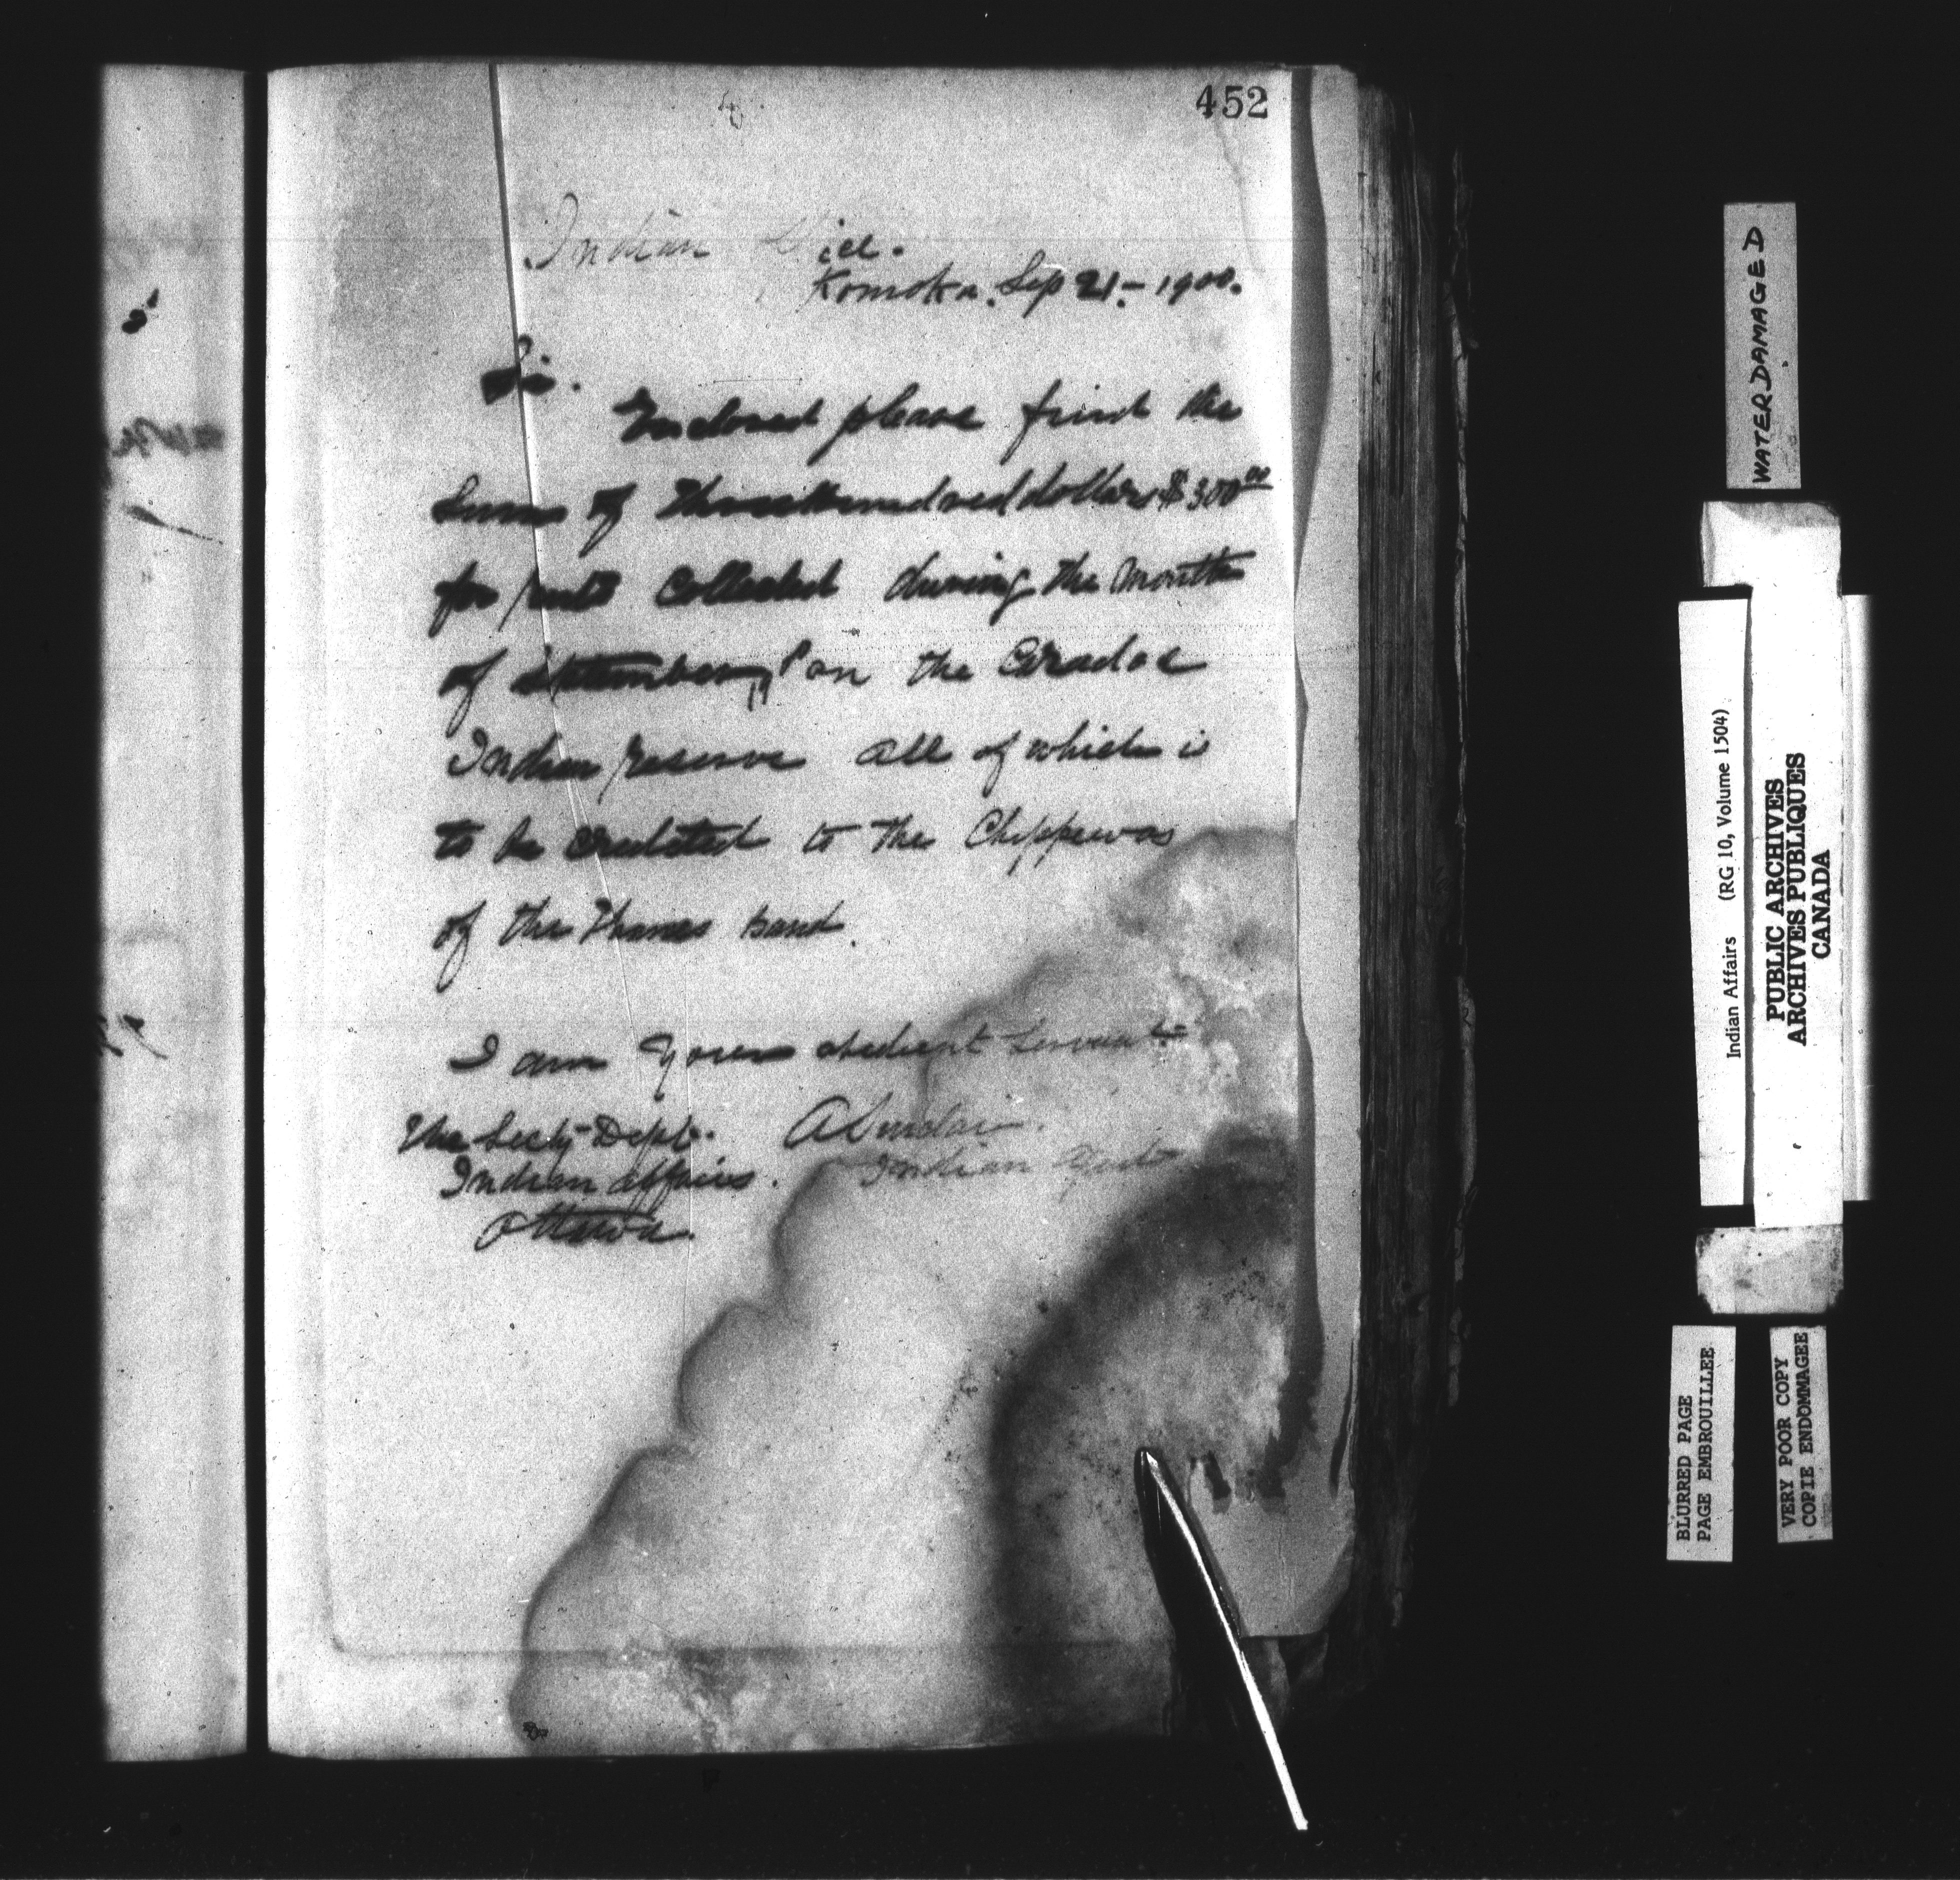 452
Indian Office.
Komoka. Sep 21.- 1900.
Sir.
Enclosed please find the
Sum of Three hundred dollars $300.00
for rents Collected during the Month
of September, on the Caradoc
Indian reserve all of which is
to be credited to the Chippewas
of the Thames band.
I am Your obedient Servant
The Secty Dept. A Sinclair.
Indian affairs. Indian Agent
Ottawa.
WATERDAMAGED
Indian Affairs (RG 10, Volume 1504)
PUBLIC ARCHIVES
ARCHIVES PUBLIQUES
CANADA
BLURRED PAGE
PAGE EMBROUILLEE
VERY POOR COPY
COPIE ENDOMMAGEE